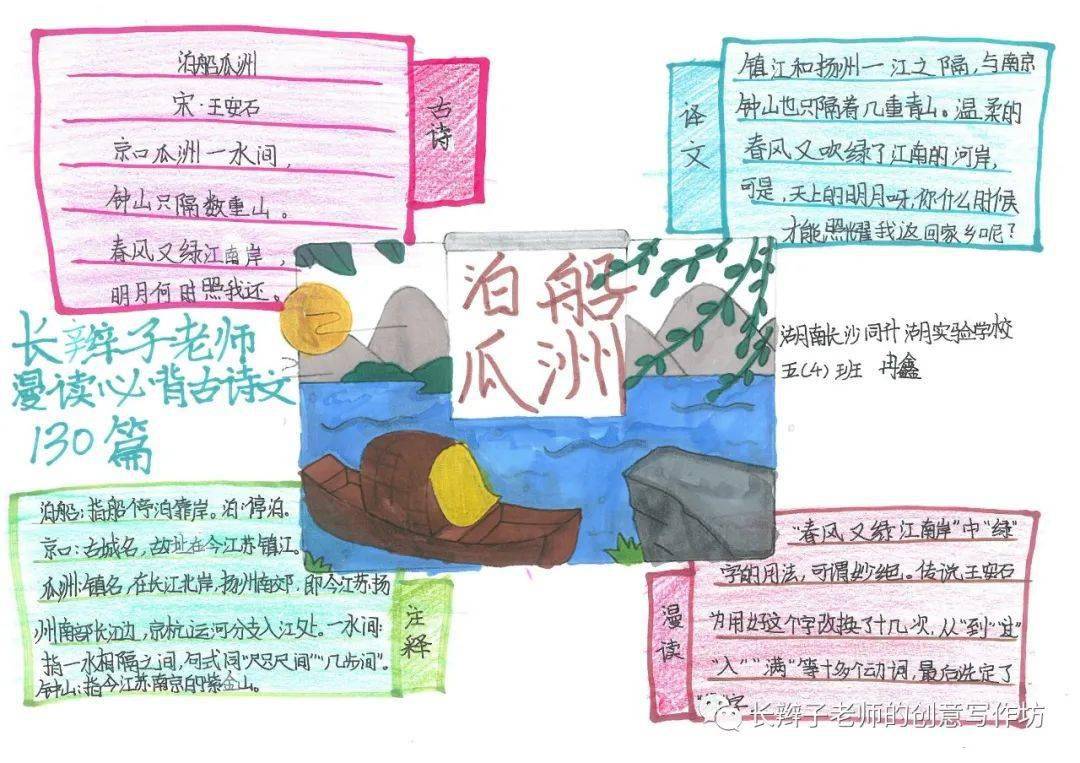 泊船瓜洲
宋·王安石
京口瓜洲一水间,
钟山只隔数重山。
春风又绿江南岸,
明月何时照我还。
古诗
译文
镇江和扬州一江之隔,与南京
钟山也只隔着几重青山。温柔的
春风又吹绿了江南的河岸,
可是,天上的明月呀,你什么时候
才能照耀我返回家乡呢?
泊船
瓜洲
长辫子老师
漫读必背古诗文
130篇
湖南长沙同升湖实验学校
五(4)班 冉鑫
泊船:指船停泊靠岸。泊:停泊。
京口:古城名,故址在今江苏镇江。
瓜洲:镇名,在长江北岸,扬州南郊,即今江苏扬
州南部长江边,京杭运河分支入江处。一水间:
指一水相隔之间,句式同“咫尺间”“几步间”。
钟山:指今江苏南京的紫金山。
注释
漫读
“春风又绿江南岸”中“绿”
字的用法,可谓妙绝。传说王安石
为用好这个字改换了十几次,从“到”“过”
“入”“满”等十多个动词,最后选定了
字。
长辫子老师的创意写作坊